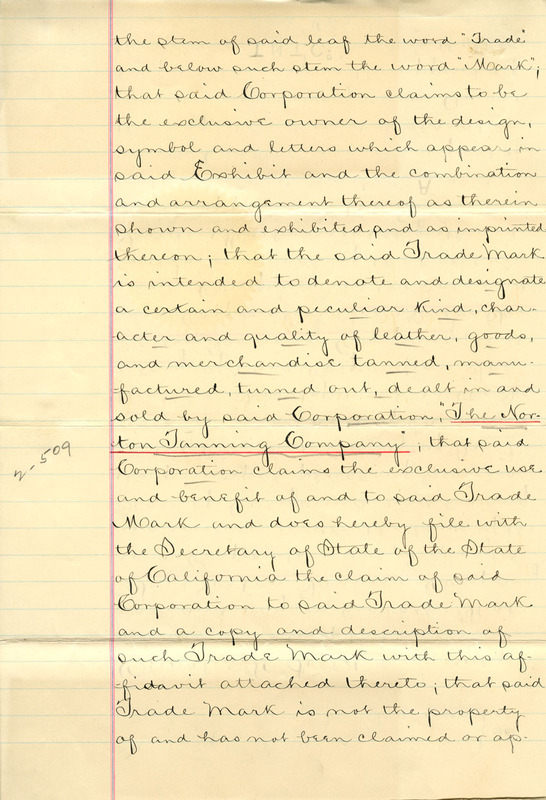 the stem of said leaf the word "Trade"
and below such stem the word "Mark";
that said Corporation claims to be
the exclusive owner of the design,
symbol and letters which appear in
said Exhibit and the combination
and arrangement thereof as therein
shown and exhibited and as imprinted
thereon; that the said Trade Mark
is intended to denote and designate
a certain and peculiar kind, char-
acter and quality of leather, goods,
and merchandise tanned, manu-
-factured, turned out, dealt in and
sold by said Corporation, "The Nor-
ton Tanning Company"; that said
Corporation claims the exclusive use
and benefit of and to said Trade
Mark and does hereby file with
the Secretary of State of the State
of California the claim of said
Corporation to said Trade Mark
and a copy and description of
such Trade Mark with this af-
-fidavit attached thereto; that said
Trade Mark is not the property
of and has not been claimed or ap-
2-509